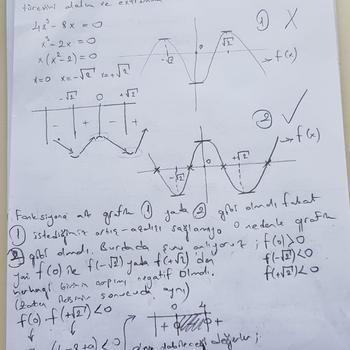 türevini alalım ve extremum
4x³ - 8x = 0
x³ - 2x = 0
x(x² - 2) = 0
x=0 x=-√2 x=+√2
-√2 0 +√2
- + - +
① X
-√2 0 √2
f(x)
② ✓
f(x)
-√2 0 +√2
Fonksiyona ait grafik ① yada ② gibi olmalı fakat
① istediğimiz artış-azalışı sağlamıyor o nedenle grafik
② gibi olmalı. Burdada şunu anlıyoruz ; f(0)>0
yani f(0) ile f(-√2) yada f(+√2) den
f(-√2)<0
herhangi birinin çarpımı negatif olmalı.
f(+√2)<0
(zaten ikisinin sonucuda aynı)
f(0) · f(+√2) < 0
0 4
+ +
(4-8+a) < 0
değerler ;